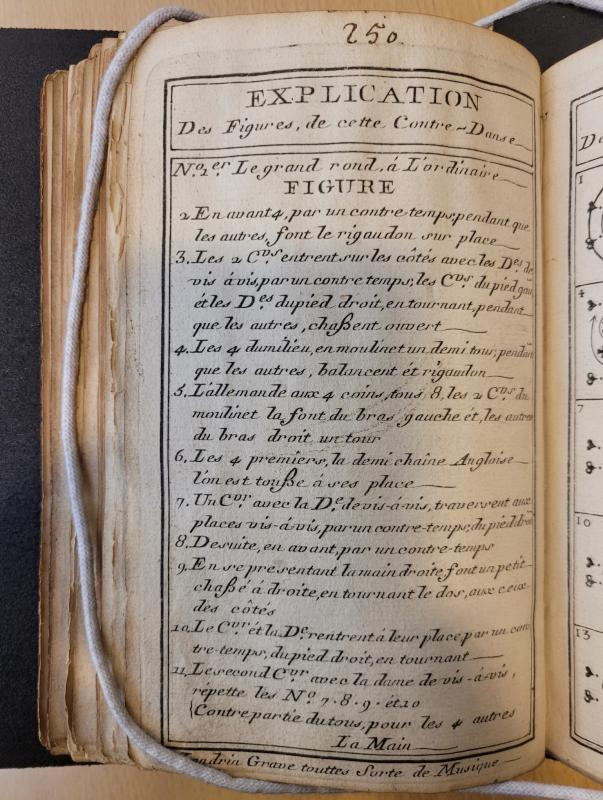 250
EXPLICATION
Des Figures, de cette Contre-Danse
N.º 1.er Le grand rond, á L'ordinaire
FIGURE
2 En avant 4, par un contre-temps, pendant que
les autres, font le rigaudon sur place
3. Les 2 C.vrs entrent sur les côtés avec les D.es de
vis á vis, par un contre temps; les C.vrs du pied gau
ét les D.es du pied droit, en tournant, pendant
que les autres, chaßent ouvert
4. Les 4 du milieu, en moulinet un demi tour, pendan
que les autres, balancent ét rigaudon
5. L'allemande aux 4 coins, tous, 8, les 2 C.vrs du
moulinet la font du bras, gauche ét, les autres
du bras droit, un tour
6. Les 4 premiers, la demi chaîne Angloise
l'ón est touße á ses place
7. Un C.vr avec la D.e de vis-á-vis, traversent aux
places vis-á-vis, par un contre-temps, du pied droit
8. De suite, en avant, par un contre-temps
9. En se presentant la main droite, font un petit
chaßé á droite, en tournant le dos, aux ceux
des côtés
10. Le C.vr ét la D.e rentrent á leur place par un con
tre-temps, du pied droit, en tournant
11. Le second C.vr avec la dame de vis-á-vis,
répette les N.º 7. 8. 9. ét 10
Contre partie du tous, pour les 4 autres
La Main
Landrin Grave touttes Sorte de Musique
D
1
4
7
10
13